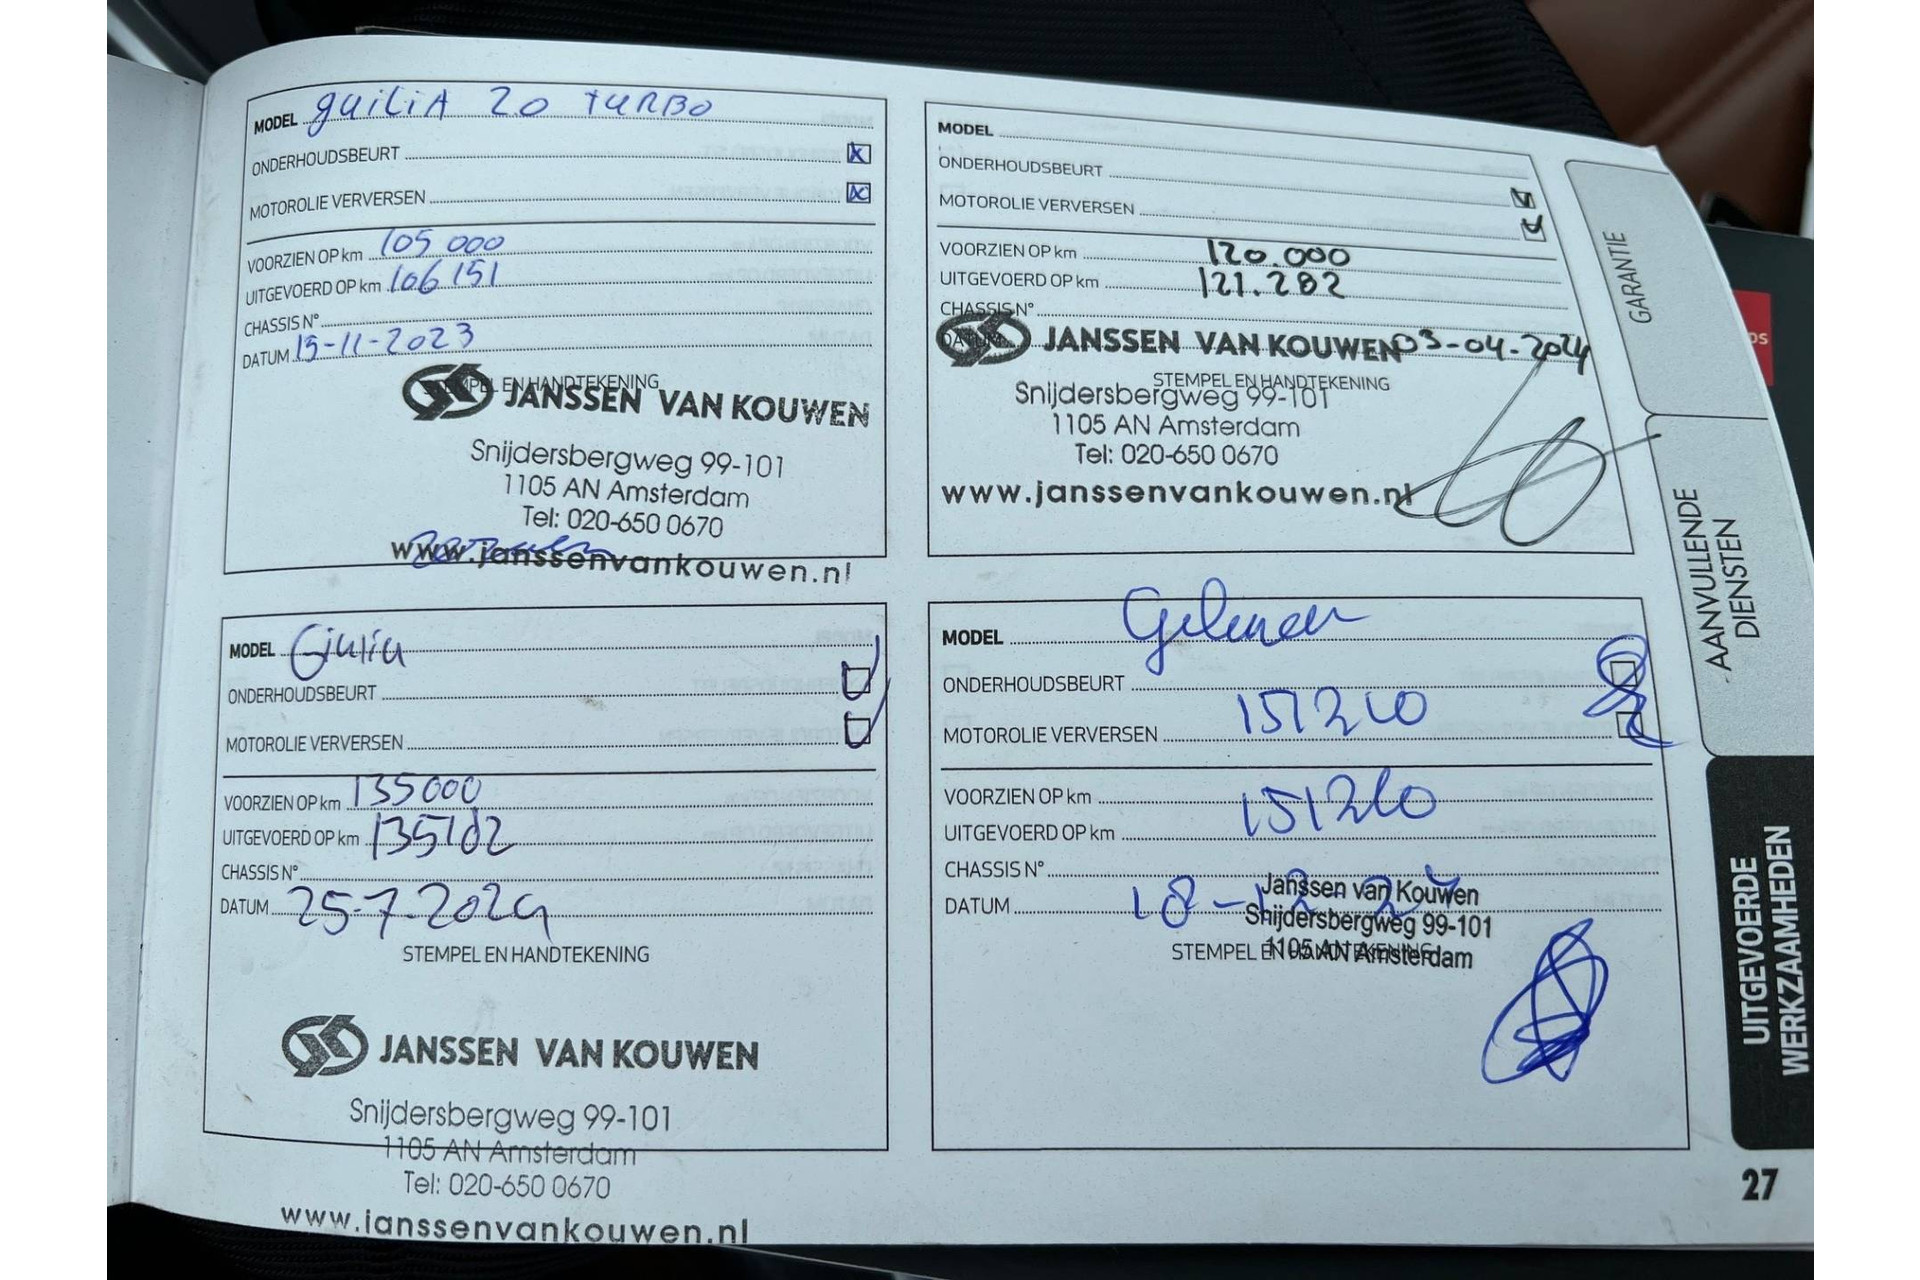 MODEL guiliA 2.0 TURBO
ONDERHOUDSBEURT
MOTOROLIE VERVERSEN
VOORZIEN OP km 105 000
UITGEVOERD OP km 106 151
CHASSIS N°
DATUM 15-11-2023
STEMPEL EN HANDTEKENING
JANSSEN VAN KOUWEN
Snijdersbergweg 99-101
1105 AN Amsterdam
Tel: 020-650 0670
www.janssenvankouwen.nl
MODEL
ONDERHOUDSBEURT
MOTOROLIE VERVERSEN
VOORZIEN OP km 120.000
UITGEVOERD OP km 121.282
CHASSIS N°
DATUM 03-04-2024
JANSSEN VAN KOUWEN
STEMPEL EN HANDTEKENING
Snijdersbergweg 99-101
1105 AN Amsterdam
Tel: 020-650 0670
www.janssenvankouwen.nl
MODEL Giulia
ONDERHOUDSBEURT
MOTOROLIE VERVERSEN
VOORZIEN OP km 135000
UITGEVOERD OP km 135102
CHASSIS N°
DATUM 25-7-2024
STEMPEL EN HANDTEKENING
JANSSEN VAN KOUWEN
Snijdersbergweg 99-101
1105 AN Amsterdam
Tel: 020-650 0670
www.janssenvankouwen.nl
MODEL
ONDERHOUDSBEURT
MOTOROLIE VERVERSEN 151210
VOORZIEN OP km 151210
UITGEVOERD OP km
CHASSIS N°
DATUM 18-12-24
Janssen van Kouwen
Snijdersbergweg 99-101
1105 AN Amsterdam
STEMPEL EN HANDTEKENING
GARANTIE
AANVULLENDE
DIENSTEN
UITGEVOERDE
WERKZAAMHEDEN
27